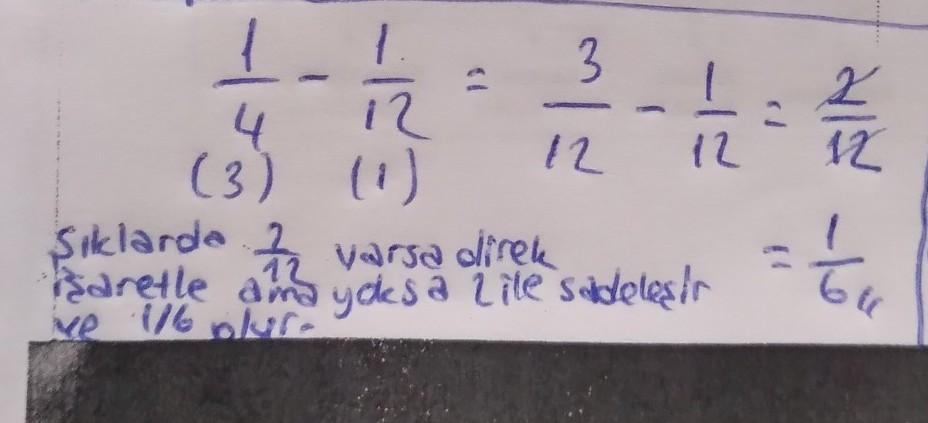 1/4 - 1/12 = 3/12 - 1/12 = 2/12
(3) (1)
= 1/6
Şıklarda 2/12 varsa direk
işaretle ama yoksa 2 ile sadeleşir
ve 1/6 olur.